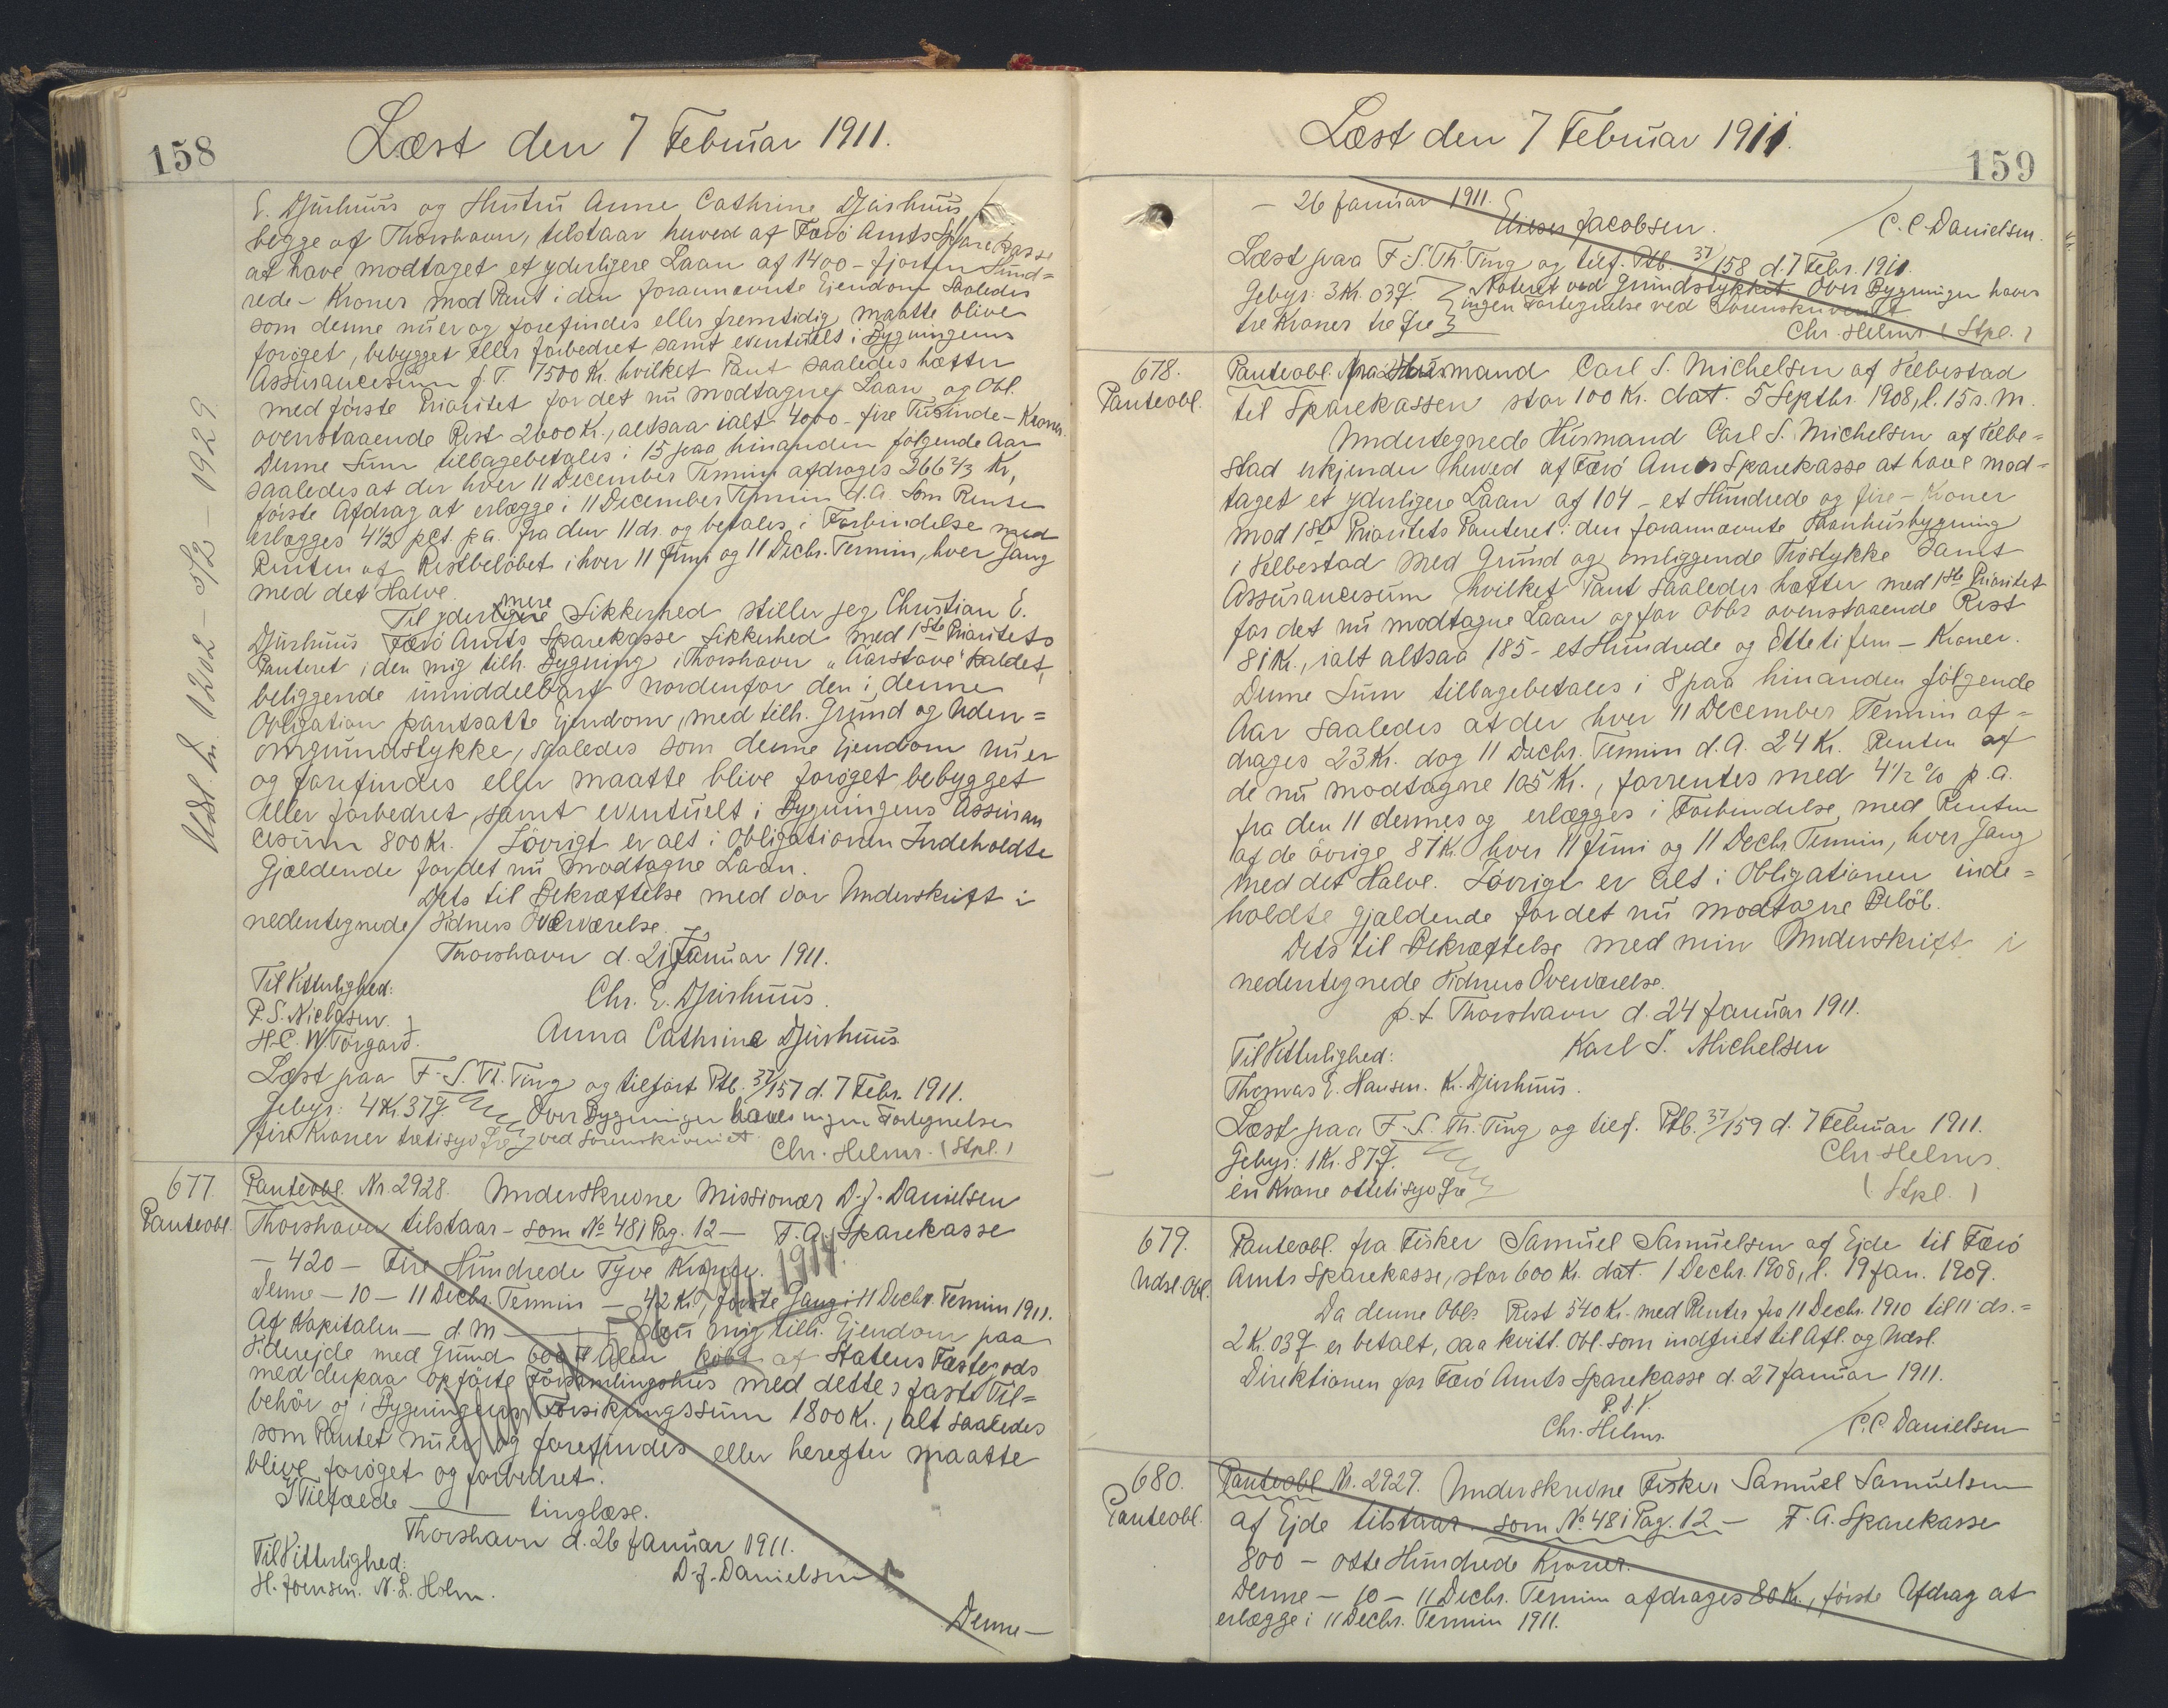 158
Læst den 7 Februar 1911.
E. Djurhuus og Hustru Anne Cathrine Djurhuus
begge af Thorshavn, tilstaar herved af Færö Amts Sparekasse
at have modtaget et yderligere Laan af 1400 - fjorten Hund=
rede - Kroner mod Pant i den forannævnte Ejendom saaledes
som denne nu er og forefindes eller fremtidig maatte blive
forøget, bebygget eller forbedret samt eventuelt i Bygningens
Assurancesum f. T. 7500 Kr. hvilket Pant saaledes hæfter
med förste Prioritet for det nu modtagne Laan og Obl.
ovenstaaende Rest 2600 Kr., altsaa ialt 4000 - fire Tusinde - Kroner.
Denne Sum tilbagebetales i 15 paa hinanden følgende Aar
saaledes at der hver 11 December Termin afdrages 266 2/3 Kr,
förste Afdrag at erlægge i 11 December Termin d.A. Som Rente
erlægges 4 1/2 pCt. p.a. fra den 11 ds. og betales i Forbindelse med
Renten af Restbeløbet i hver 11 Juni og 11 Decbr. Termin, hver Gang
med det Halve.
Til yderligere mere Sikkerhed stiller jeg Christian E.
Djurhuus Færö Amts Sparekasse Sikkerhed med 1ste Prioritets
Panteret i den mig tilh. Bygning i Thorshavn "Aarstove" kaldet,
beliggende umiddelbart nordenfor den i denne
Obligation pantsatte Ejendom, med tilh. Grund og Uden=
omgrundstykke, saaledes som denne Ejendom nu er
og forefindes eller maatte blive forøget bebygget
eller forbedret, samt eventuelt i Bygningens Assuran
cesum 800 Kr. Iövrigt er alt i Obligationen Indeholdte
Gjældende for det nu modtagne Laan.
Dets til Bekræftelse med vor Underskrift i
nedentegnede Vidners Overværelse.
Thorshavn d. 21 Januar 1911.
Til Vitterlighed:
Chr. E. Djurhuus.
P.S. Niclasen.
H.C. W. Törgard.
Anna Cathrine Djurhuus
Læst paa F.S. Th. Ting og tilført Ptb. 37/157 d. 7 Febr. 1911.
Gebyr: 4 Kr. 37 Ø. Over Bygninger haves ingen Fortegnelse
fire Kroner tretisyv Øre ved Sorenskriveriet
Chr. Helms. (Stpl.)
Udsl. L. 1202 - 5/2 - 1929.
677
Panteobl.
Panteobl. Nr. 2928. Underskrevne Missionær D.J. Danielsen
Thorshavn tilstaar - som No 48 i Pag. 12 - F.A. Sparekasse
- 420 - Fire Hundrede Tyve Kroner.
Denne - 10 - 11 Decbr. Termin - 42 Kr., förste Gang i 11 Decbr. Termin 1911.
Af Kapitalen - d. m - den mig tilh. Ejendom paa
Viderejde med Grund 600 □ Alen købt af Statens Fæstegods
med derpaa opførte Forsamlingshus med dettes faste Til=
behör og i Bygningens Forsikringssum 1800 Kr., alt saaledes
som Pantet nu er og forefindes eller herefter maatte
blive forøget og forbedret.
I Tilfælde - tinglæse.
Thorshavn d. 26 Januar 1911.
Til Vitterlighed:
D.J. Danielsen
H. Joensen. N.L. Holm.
Denne -
159
Læst den 7 Februar 1911.
- 26 Januar 1911.
Jacobsen.
C.C. Danielsen.
Læst paa F.S. Th. Ting og tilf. Ptb. 37/158 d. 7 Febr. 1911.
Gebyr: 3 Kr. 03 Ø. Noteret ved Grundstykket. Over Bygninger haves
tre Kroner tre Øre ingen Fortegnelse ved Sorenskriveriet
Chr. Helms (Stpl.)
678.
Panteobl.
Panteobl. fra Husmand Carl S. Michelsen af Velbestad
til Sparekassen stor 100 Kr. dat. 5 Septbr. 1908, l. 15 s. M.
Undertegnede Husmand Carl S. Michelsen af Velbe=
stad erkjender herved af Færö Amts Sparekasse at have mod=
taget et yderligere Laan af 104 - et Hundrede og fire - Kroner
mod 1ste Prioritets Panteret i den forannævnte Vaanhusbygning
i Velbestad med Grund og omliggende Trøstykke samt
Assurancesum hvilket Pant saaledes hæfter med 1ste Prioritet
for det nu modtagne Laan og for Obls ovenstaaende Rest
81 Kr., ialt altsaa 185 - et Hundrede og Otteti fem - Kroner.
Denne Sum tilbagebetales i 8 paa hinanden følgende
Aar saaledes at der hver 11 December Termin af=
drages 23 Kr. dog 11 Decbr. Termin d.A. 24 Kr. Renten af
de nu modtagne 105 Kr., forrentes med 4 1/2 % p.a.
fra den 11 dennes og erlægges i Forbindelse med Renten
af de övrige 81 Kr. hver 11 Juni og 11 Decbr Termin, hver Gang
med det Halve. Iövrigt er alt i Obligationen inde=
holdte gjældende for det nu modtagne Beløb.
Dets til Bekræftelse med min Underskrift i
nedentegnede Vidners Overværelse.
p.t. Thorshavn d. 24 Januar 1911.
Til Vitterlighed:
Karl S. Michelsen
Thomas E. Hansen. K. Djurhuus.
Læst paa F.S. Th. Ting og tilf. Ptb. 37/159 d. 7 Februar 1911.
Gebyr: 1 Kr. 87 Ø.
Chr Helms.
en Krone ottetisyv Øre
(Stpl.)
679.
Udsl. Obl.
Panteobl. fra Fisker Samuel Samuelsen af Ejde til Færö
Amts Sparekasse, stor 600 Kr. dat. 1 Decbr. 1908, l. 19 Jan. 1909.
Da denne Obls Rest 540 Kr. med Renter fra 11 Decbr. 1910 til 11 ds. =
2 Kr. 03 Ø er betalt, saa kvitt. Obl. som indfriet til Afl. og Udsl.
Direktionen for Færö Amts Sparekasse d. 27 Januar 1911.
P.S.V.
Chr. Helms.
C.C. Danielsen
680.
Panteobl.
Panteobl. Nr. 2929. Underskrevne Fisker Samuel Samuelsen
af Ejde tilstaar - som No. 48 i Pag. 12 - F.A. Sparekasse
800 - otte Hundrede Kroner.
Denne - 10 - 11 Decbr. Termin afdrages 80 Kr., förste Afdrag at
erlægge i 11 Decbr. Termin 1911.